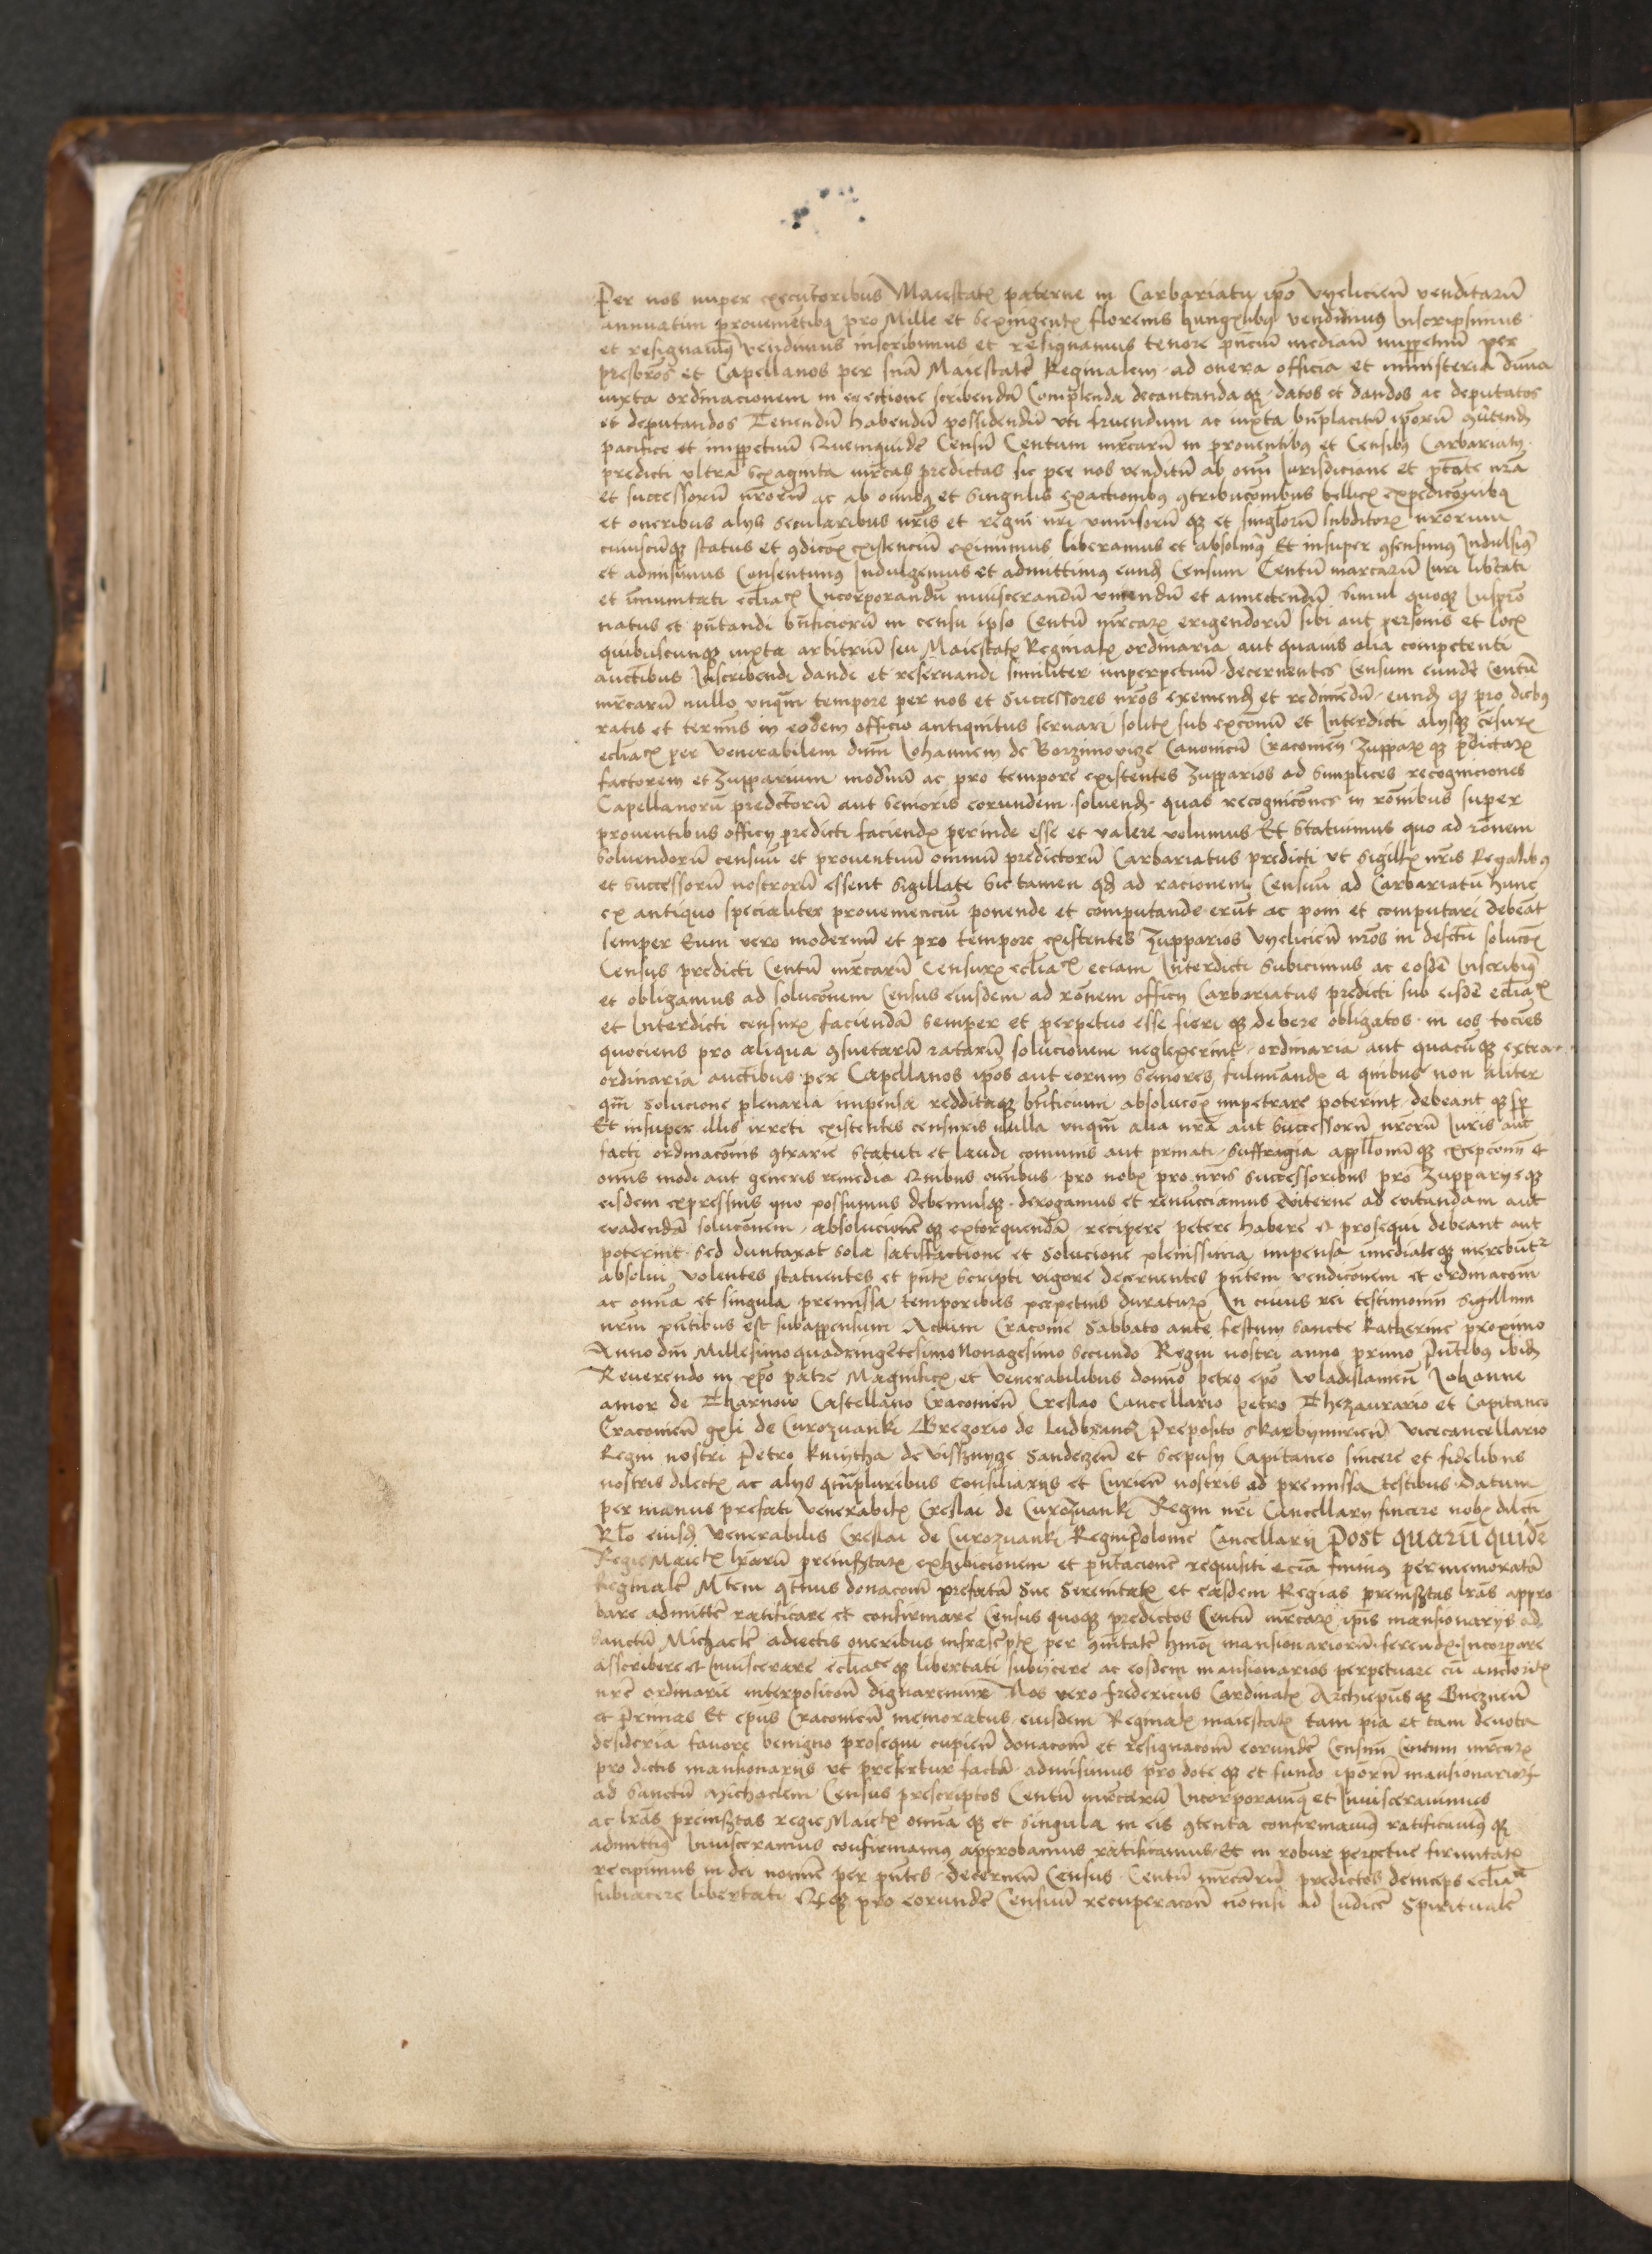 Per nos nuper executoribus Maiestatꝭ paterne in Carbariatu ipō Vyelicień venditarū
annuatim proventibꝰ pro Mille et Sexingentꝭ florenis hungꝭlibꝰ vendidimꝰ Inscripsimus
et resignavimꝰ vendimus inscribimus et resignamus tenore pn̄ciū mediań imꝑpetuū per
presbrōs et Capellanos per suā Maiestatē Reginalem ad onera officia et ministeria diuīa
iuxta ordinacionem in erectione scribendā Complenda decantandaqꝫ datos et dandos ac deputatos
et deputandos Tenendū habendū possidendū vti fruendum ac iuxta bn̄placitū ipōrū ꝯūtend̄
pacifice et imꝑpetuū Quemquidē Censū Centum mr̄carū in proventibꝰ et Censibꝰ Carbariatꝰ
predicti vltra Sexaginta mr̄cas predictas sic per nos venditū ab om̄i Iurisdicione et pt̄ate nr̄a
et successorū nr̄orū ac ab om̄ibꝰ et singulis exactionibꝰ ꝯtribucōnibus bellicꝭ expedicōnibꝰ
et oneribus alijs secularibus nr̄is et regni nr̄i vniu͛sorū qꝫ et singlorū subditoꝝ nr̄orum
cuiuscūqꝫ status et ꝯdicōꝭ existenciū eximimus liberamus et absoluimꝰ Et insuper ꝯsensimꝰ Indulsimꝰ
et admisimus Consentimꝰ Indulgemus et admittimꝰ eund̄ Censum Centū marcarū Iuri libt̄ati
et īmunitati ecl̄iaꝭ Incorporandū inviscerandū vniendū et annectendū Simul quoqꝫ Iuspr̄o
natus et pn̄tandi bn̄ficiorū in censu ipso Centū mr̄caꝝ erigendorū sibi aut personis et locꝭ
quibuscunqꝫ iuxta arbitriū seu Maiestatꝭ Reginalꝭ ordinaria aut quauis alia competenti
auct̄ibus Inscribendi dandi et reservandi similiter imperpetuū decernentes Censum eundē Centū
mr̄carū nullo vnqm̄ tempore per nos et Successores nr̄os eximend̄ et redimēdū eund̄ qꝫ pro diebꝰ
ratis et termis in eodem officio antiquitus servari solitꝭ sub excōniū et Interdicti alijsqꝫ cēsurꝭ
ecl̄iaꝭ per Venerabilem dn̄m Iohannem de Borzimovicze Canonicū Cracoviēn Zuppaꝝ qꝫ p̄dictaꝝ
factorem et zupparium modn̄ū ac pro tempore existentes zupparios ad simplices recogniciones
Capellanorū predictorū aut Senioris eorundem soluend̄ quas recognicōnes in rōnibus super
proventibus officij predicti faciendꝭ perinde esse et valere volumus Et Statuimus quo ad rōnem
soluendorū censuū et proventuū omniū predictorū Carbariatus predicti vt sigillꝭ nr̄is Regalibꝰ
et successorū nostrorū essent sigillate Sic tamen qd̄ ad racionem Censuū ad Carbariatū hunc
ex antiquo specialiter proveniēnciū ponende et computande erūt ac poni et computari debeāt
semper Eum vero modernū et pro tempore existentes Zupparios Vyelicień nr̄os in defectū solucōꝭ
Census predicti Centū mr̄carū Censuꝝ ecl̄iaꝭ eciam Interdicti Subicimus ac eosdē Inscribimꝰ
et obligamus ad solucōnem Census eiusdem ad rōnem officij Carbariatus predicti sub eisdē ecl̄iaꝭ
et Interdicti censurꝭ faciendā Semper et perpetuo esse fieri qꝫ debere obligatos in eos tociēs
quociens pro aliqua ꝯsuetarū ratarū solucionem neglexerint ordinaria aut quacūqꝫ extra-
ordinaria auct̄ibus per Capellanos ipōs aut eorum Seniores fulminandꝭ a quibus non aliter
qm̄ Solucione plenaria impensa redditaqꝫ bn̄ficium absolucōꝭ impetrare poterint debeant qꝫ
Et insuper illis irreti existentes censuris nulla vnqm̄ alia nr̄a aut Successorū nr̄orū Iuris aut
facti ordinacōnis ꝯtrarie Statuti et laudi comunis aut privati Suffragia appllonū qꝫ excepcōnū et
om̄is modi aut generis remedia Quibus om̄ibus pro nobꝭ pro nr̄is Successoribus pro zupparijsqꝫ
eisdem expressius quo possumus debemusqꝫ derogamus et renuncciamus ad evitandam aut
evadendā solucōnem absolucionē qꝫ extorquendā recipere petere habere et prosequi debeant aut
poterint Sed duntaxat Sola satisfactione et Solucione plenissima impensa imēdiateqꝫ merebūtʳ
absolui Volentes statuentes et pn̄tꝭ Scripti vigore decernentes pn̄tem vendicōnem et ordinacōm
ac omīa et singula premissa temporibus perpetuis duraturꝭ In cuius rei testimoniū Sigillum
nr̄m pn̄tibus est subappensum Actum Cracovie Sabbato ante festum Sancte Katherine proximo
Anno dn̄i Millesimoquadringētesimo Nonagesimo Secundo Regni nostri anno primo Pn̄tibꝰ ibid̄
Reverendo in xp̄o patre Magnificꝭ et Venerabilibus domō petro ep̄o Wladislavień Iohanne
amor de Tharnow Castellano Cracovień Creslao Cancellario petro Thezaurario et Capitaneo
Cracovień gn̄li de Curozwanki Gregorio de ludbrancz Preposito Skarbymirień Vicecancellario
Regni nostri Petro Kmytha de Vissznycze Sandeczeń et Scepusij Capitaneo sincere et fidelibus
nostris dilectꝭ ac alijs qm̄pluribus Consiliarijs et Curień nostris ad premissa testibus Datum
per manus prefati Venerabilꝭ Creslai de Curozwanki Regni nr̄i Cancellarij sincere nobꝭ dilecti
Rlō eiusd̄ Venerabilis Creslai de Curozwanki Regni polonie Cancellarij Post quarū quidē
Regie Maietꝭ lr̄arū preinsertaꝝ exhibicionem et pn̄tacionē requisiti eciā fuimꝰ per memoratā
Reginalē Mtem qtn̄us donacōm prefatā Sue Serenitatꝭ et easdem Regias preinsertas lr̄as appro
bare admittē ratificare et confirmare Census quoqꝫ predictos Centū mr̄caꝝ ipīs mansionarijs ad
Sanctū Michaelē adiectis oneribus infrascriptꝭ per ꝯmunitatē hm̄oi mansionariorū ferendꝭ Incorporare
asscribere et Inviscerare ecl̄iaceqꝫ libertati subijcere ac eosdem mansionarios perpetuare cū auctoritꝭ
nr̄e ordinarie interposicōne dignaremur Nos vero fredericus Cardinalꝭ Archiep̄usqꝫ Gnezneń
et Primas Et ep̄us Cracovień memoratus eiusdem Reginalꝭ maiestatꝭ tam pia et tam devota
desideria favore benigno prosequi cupień donacōm et resignacōm eorundē Censuū Centum mr̄caꝝ
pro dictis mansionarijs vt prefertur factā admisimus pro dote qꝫ et fundo ipōrū mansionarioꝝ
ad Sanctū Michaelem Census prescriptos Centū mr̄carū Incorporavimꝰ et Inviscerauimus
ac lr̄as preinsertas regie Maietꝭ omīa qꝫ et Singula in eis ꝯtenta confirmavimꝰ ratificavimꝰ qꝫ
admittimꝰ Inviceramus confirmamus approbamus ratificamus Et in robur perpetue firmitatꝭ
recipimus in dei nomine per pn̄tes decerneń Census Centū mr̄carū predictos deinceps ecl̄iaᵉ
subiacere libertati Qꝫ pro eorundē Censuū recuperacōn nonnisi ad Iudicē Spiritualē